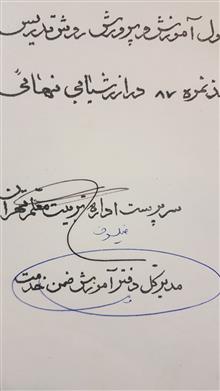 ول آموزش و پرورش روش تدریس
نمره ۸۷ در ارزشیابی نهائی
سرپرست اداره تربیت معلم تهران
مدیر کل دفتر آموزش ضمن خدمت